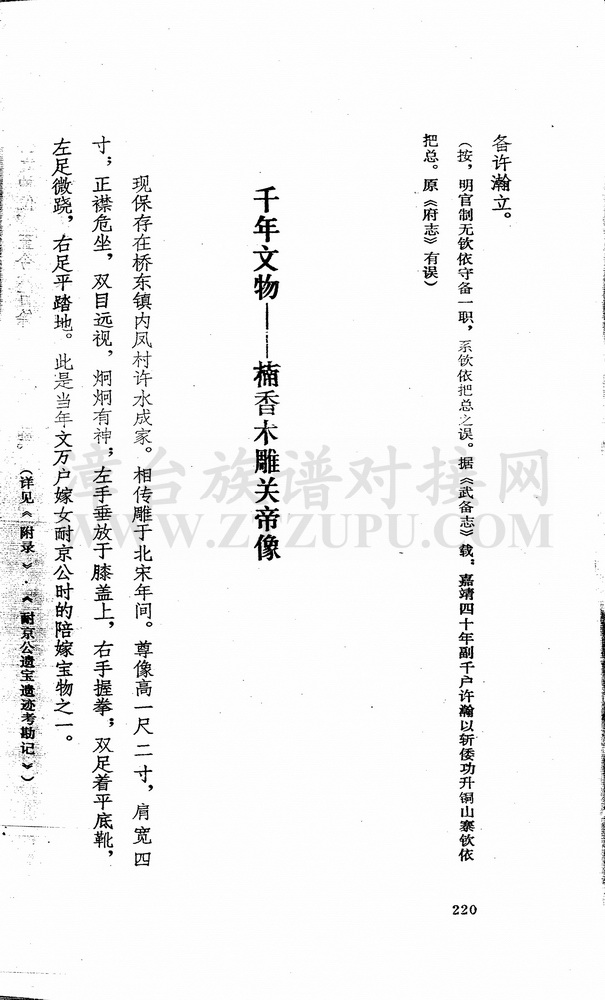 备许瀚立。
(按，明官制无钦依守备一职，系钦依把总之误。据《武备志》载：嘉靖四十年副千户许瀚以斩倭功升铜山寨钦依
把总。原《府志》有误)
千年文物——楠香木雕关帝像
现保存在桥东镇内凤村许水成家。相传雕于北宋年间。尊像高一尺二寸，肩宽四
寸；正襟危坐，双目远视，炯炯有神；左手垂放于膝盖上，右手握拳；双足着平底靴，
左足微跷，右足平踏地。此是当年文万户嫁女耐京公时的陪嫁宝物之一。
(详见《附录》·《耐京公遗宝遗迹考勘记》)
220
漳台族谱对接网
WWW.ZTZUPU.COM